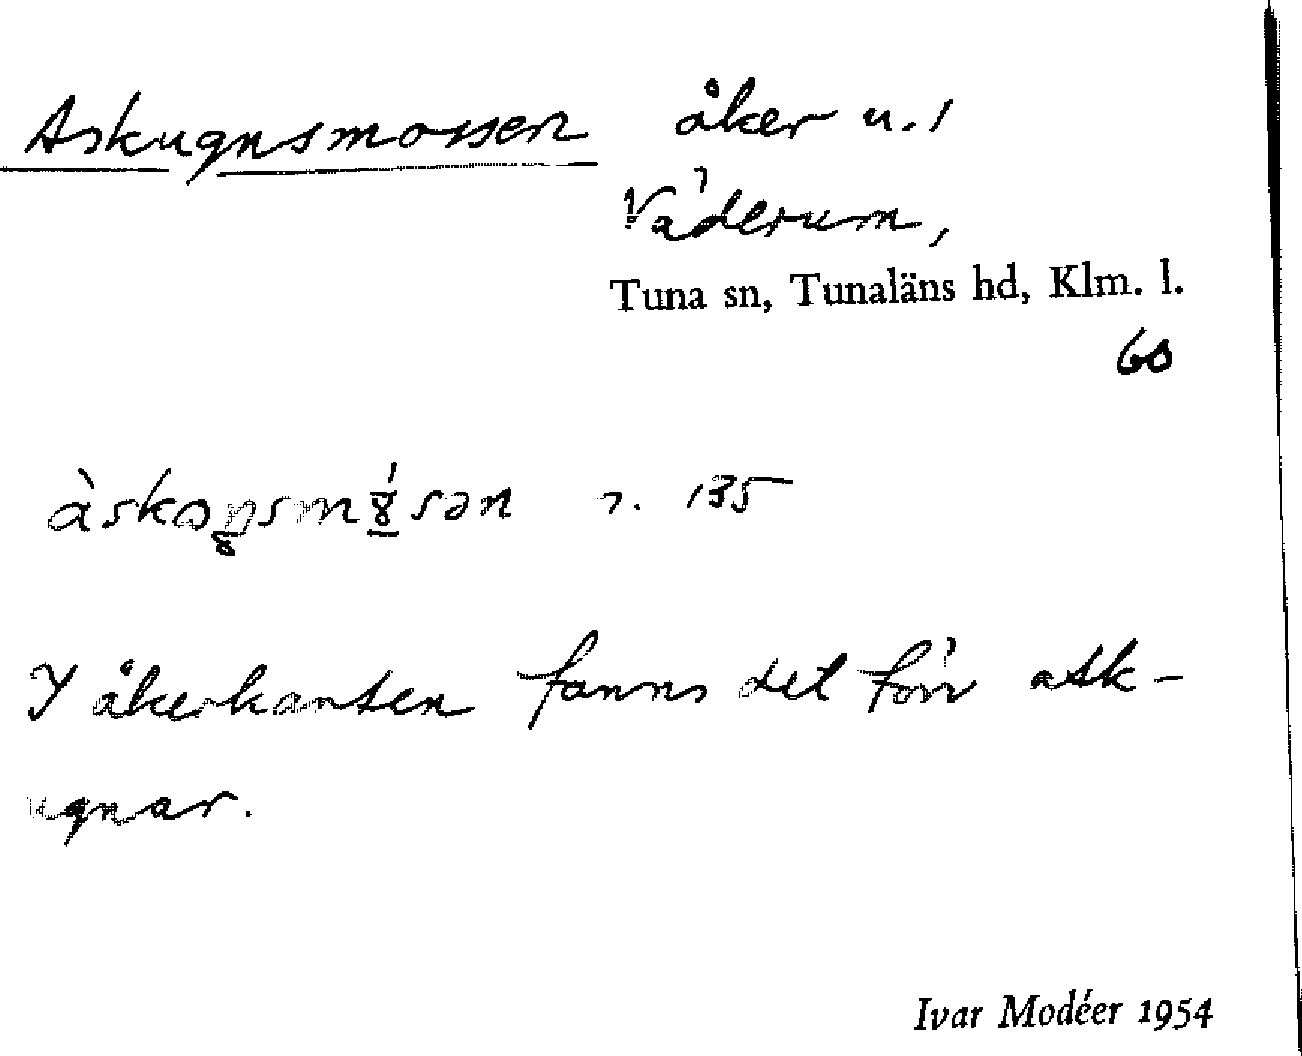 Askugnsmossen åker u. 1
Väderum,
Tuna sn, Tunaläns hd, Klm. l.
60
135
I åkerkanten fanns det förr ask-
ugnar.
Ivar Modéer 1954